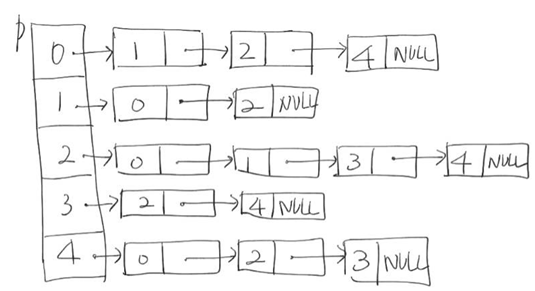 p
0 1 2 4 NULL
1 0 2 NULL
2 0 1 3 4 NULL
3 2 4 NULL
4 0 2 3 NULL